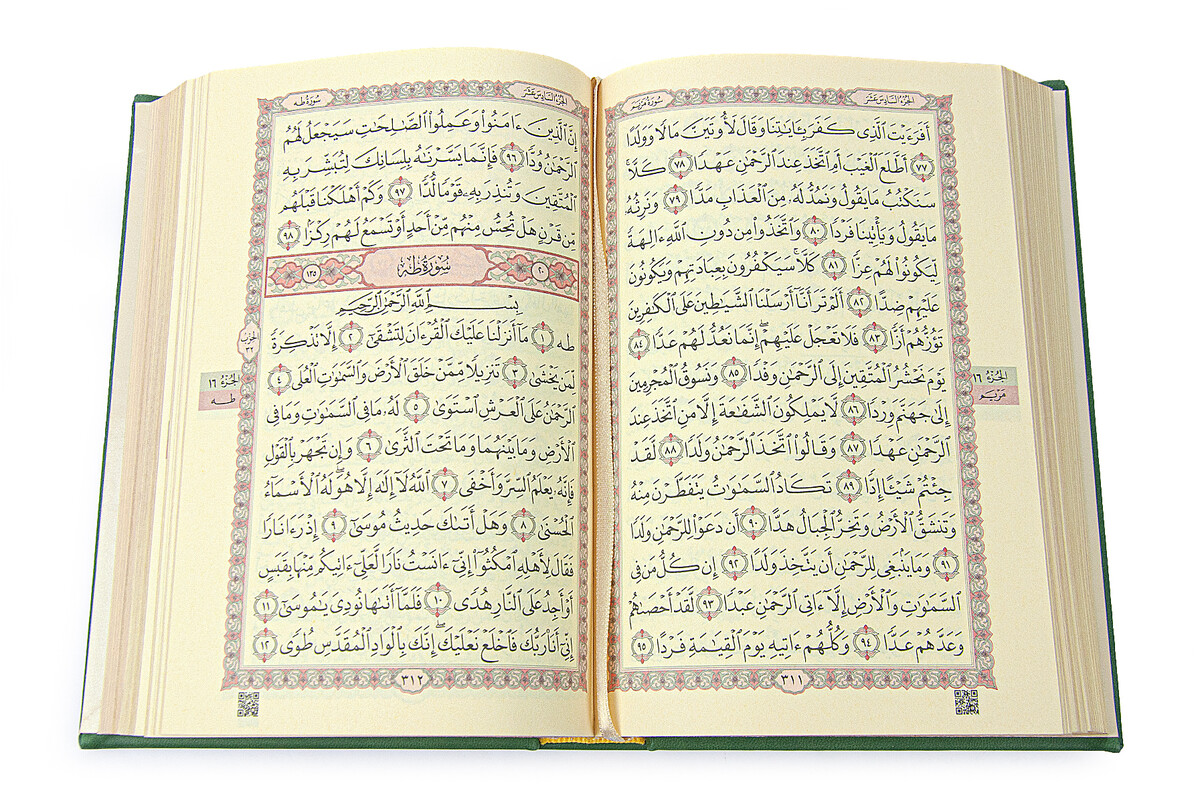 سُورَةُ مَرْيَمَ
الجُزْءُ السَّادِسَ عَشَرَ
أَفَرَءَيْتَ ٱلَّذِى كَفَرَ بِـَٔايَٰتِنَا وَقَالَ لَأُوتَيَنَّ مَالًا وَوَلَدًا
٧٧ أَطَّلَعَ ٱلْغَيْبَ أَمِ ٱتَّخَذَ عِندَ ٱلرَّحْمَٰنِ عَهْدًا ٧٨ كَلَّا
سَنَكْتُبُ مَا يَقُولُ وَنَمُدُّ لَهُۥ مِنَ ٱلْعَذَابِ مَدًّا ٧٩ وَنَرِثُهُۥ
مَا يَقُولُ وَيَأْتِينَا فَرْدًا ٨٠ وَٱتَّخَذُوا۟ مِن دُونِ ٱللَّهِ ءَالِهَةً
لِّيَكُونُوا۟ لَهُمْ عِزًّا ٨١ كَلَّا سَيَكْفُرُونَ بِعِبَادَتِهِمْ وَيَكُونُونَ
عَلَيْهِمْ ضِدًّا ٨٢ أَلَمْ تَرَ أَنَّآ أَرْسَلْنَا ٱلشَّيَٰطِينَ عَلَى ٱلْكَٰفِرِينَ
تَؤُزُّهُمْ أَزًّا ٨٣ فَلَا تَعْجَلْ عَلَيْهِمْ إِنَّمَا نَعُدُّ لَهُمْ عَدًّا ٨٤
يَوْمَ نَحْشُرُ ٱلْمُتَّقِينَ إِلَى ٱلرَّحْمَٰنِ وَفْدًا ٨٥ وَنَسُوقُ ٱلْمُجْرِمِينَ
إِلَىٰ جَهَنَّمَ وِرْدًا ٨٦ لَّا يَمْلِكُونَ ٱلشَّفَٰعَةَ إِلَّا مَنِ ٱتَّخَذَ عِندَ
ٱلرَّحْمَٰنِ عَهْدًا ٨٧ وَقَالُوا۟ ٱتَّخَذَ ٱلرَّحْمَٰنُ وَلَدًا ٨٨ لَّقَدْ
جِئْتُمْ شَيْـًٔا إِدًّا ٨٩ تَكَادُ ٱلسَّمَٰوَٰتُ يَتَفَطَّرْنَ مِنْهُ
وَتَنشَقُّ ٱلْأَرْضُ وَتَخِرُّ ٱلْجِبَالُ هَدًّا ٩٠ أَن دَعَوْا۟ لِلرَّحْمَٰنِ وَلَدًا
٩١ وَمَا يَنۢبَغِى لِلرَّحْمَٰنِ أَن يَتَّخِذَ وَلَدًا ٩٢ إِن كُلُّ مَن فِى
ٱلسَّمَٰوَٰتِ وَٱلْأَرْضِ إِلَّآ ءَاتِى ٱلرَّحْمَٰنِ عَبْدًا ٩٣ لَّقَدْ أَحْصَىٰهُمْ
وَعَدَّهُمْ عَدًّا ٩٤ وَكُلُّهُمْ ءَاتِيهِ يَوْمَ ٱلْقِيَٰمَةِ فَرْدًا ٩٥
الجُزْءُ ١٦
مَرْيَم
٣١١
الجُزْءُ السَّادِسَ عَشَرَ
سُورَةُ طه
إِنَّ ٱلَّذِينَ ءَامَنُوا۟ وَعَمِلُوا۟ ٱلصَّٰلِحَٰتِ سَيَجْعَلُ لَهُمُ
ٱلرَّحْمَٰنُ وُدًّا ٩٦ فَإِنَّمَا يَسَّرْنَٰهُ بِلِسَانِكَ لِتُبَشِّرَ بِهِ
ٱلْمُتَّقِينَ وَتُنذِرَ بِهِۦ قَوْمًا لُّدًّا ٩٧ وَكَمْ أَهْلَكْنَا قَبْلَهُم
مِّن قَرْنٍ هَلْ تُحِسُّ مِنْهُم مِّنْ أَحَدٍ أَوْ تَسْمَعُ لَهُمْ رِكْزًۢا ٩٨
٢٠ سُورَةُ طه ١٣٥
بِسْمِ ٱللَّهِ ٱلرَّحْمَٰنِ ٱلرَّحِيمِ
طه ١ مَآ أَنزَلْنَا عَلَيْكَ ٱلْقُرْءَانَ لِتَشْقَىٰٓ ٢ إِلَّا تَذْكِرَةً
لِّمَن يَخْشَىٰ ٣ تَنزِيلًا مِّمَّنْ خَلَقَ ٱلْأَرْضَ وَٱلسَّمَٰوَٰتِ ٱلْعُلَى ٤
ٱلرَّحْمَٰنُ عَلَى ٱلْعَرْشِ ٱسْتَوَىٰ ٥ لَهُۥ مَا فِى ٱلسَّمَٰوَٰتِ وَمَا فِى
ٱلْأَرْضِ وَمَا بَيْنَهُمَا وَمَا تَحْتَ ٱلثَّرَىٰ ٦ وَإِن تَجْهَرْ بِٱلْقَوْلِ
فَإِنَّهُۥ يَعْلَمُ ٱلسِّرَّ وَأَخْفَى ٧ ٱللَّهُ لَآ إِلَٰهَ إِلَّا هُوَ لَهُ ٱلْأَسْمَآءُ
ٱلْحُسْنَىٰ ٨ وَهَلْ أَتَىٰكَ حَدِيثُ مُوسَىٰٓ ٩ إِذْ رَءَا نَارًا
فَقَالَ لِأَهْلِهِ ٱمْكُثُوٓا۟ إِنِّىٓ ءَانَسْتُ نَارًا لَّعَلِّىٓ ءَاتِيكُم مِّنْهَا بِقَبَسٍ
أَوْ أَجِدُ عَلَى ٱلنَّارِ هُدًى ١٠ فَلَمَّآ أَتَىٰهَا نُودِىَ يَٰمُوسَىٰٓ ١١
إِنِّىٓ أَنَا۠ رَبُّكَ فَٱخْلَعْ نَعْلَيْكَ إِنَّكَ بِٱلْوَادِ ٱلْمُقَدَّسِ طُوًى ١٢
الحِزْب
٣٢
الجُزْءُ ١٦
طه
٣١٢